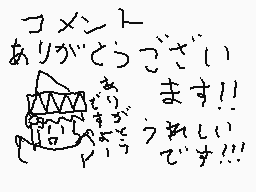 コメント
ありがとうござい
ます!!
うれしい
です!!!
ありがとう
ですよー